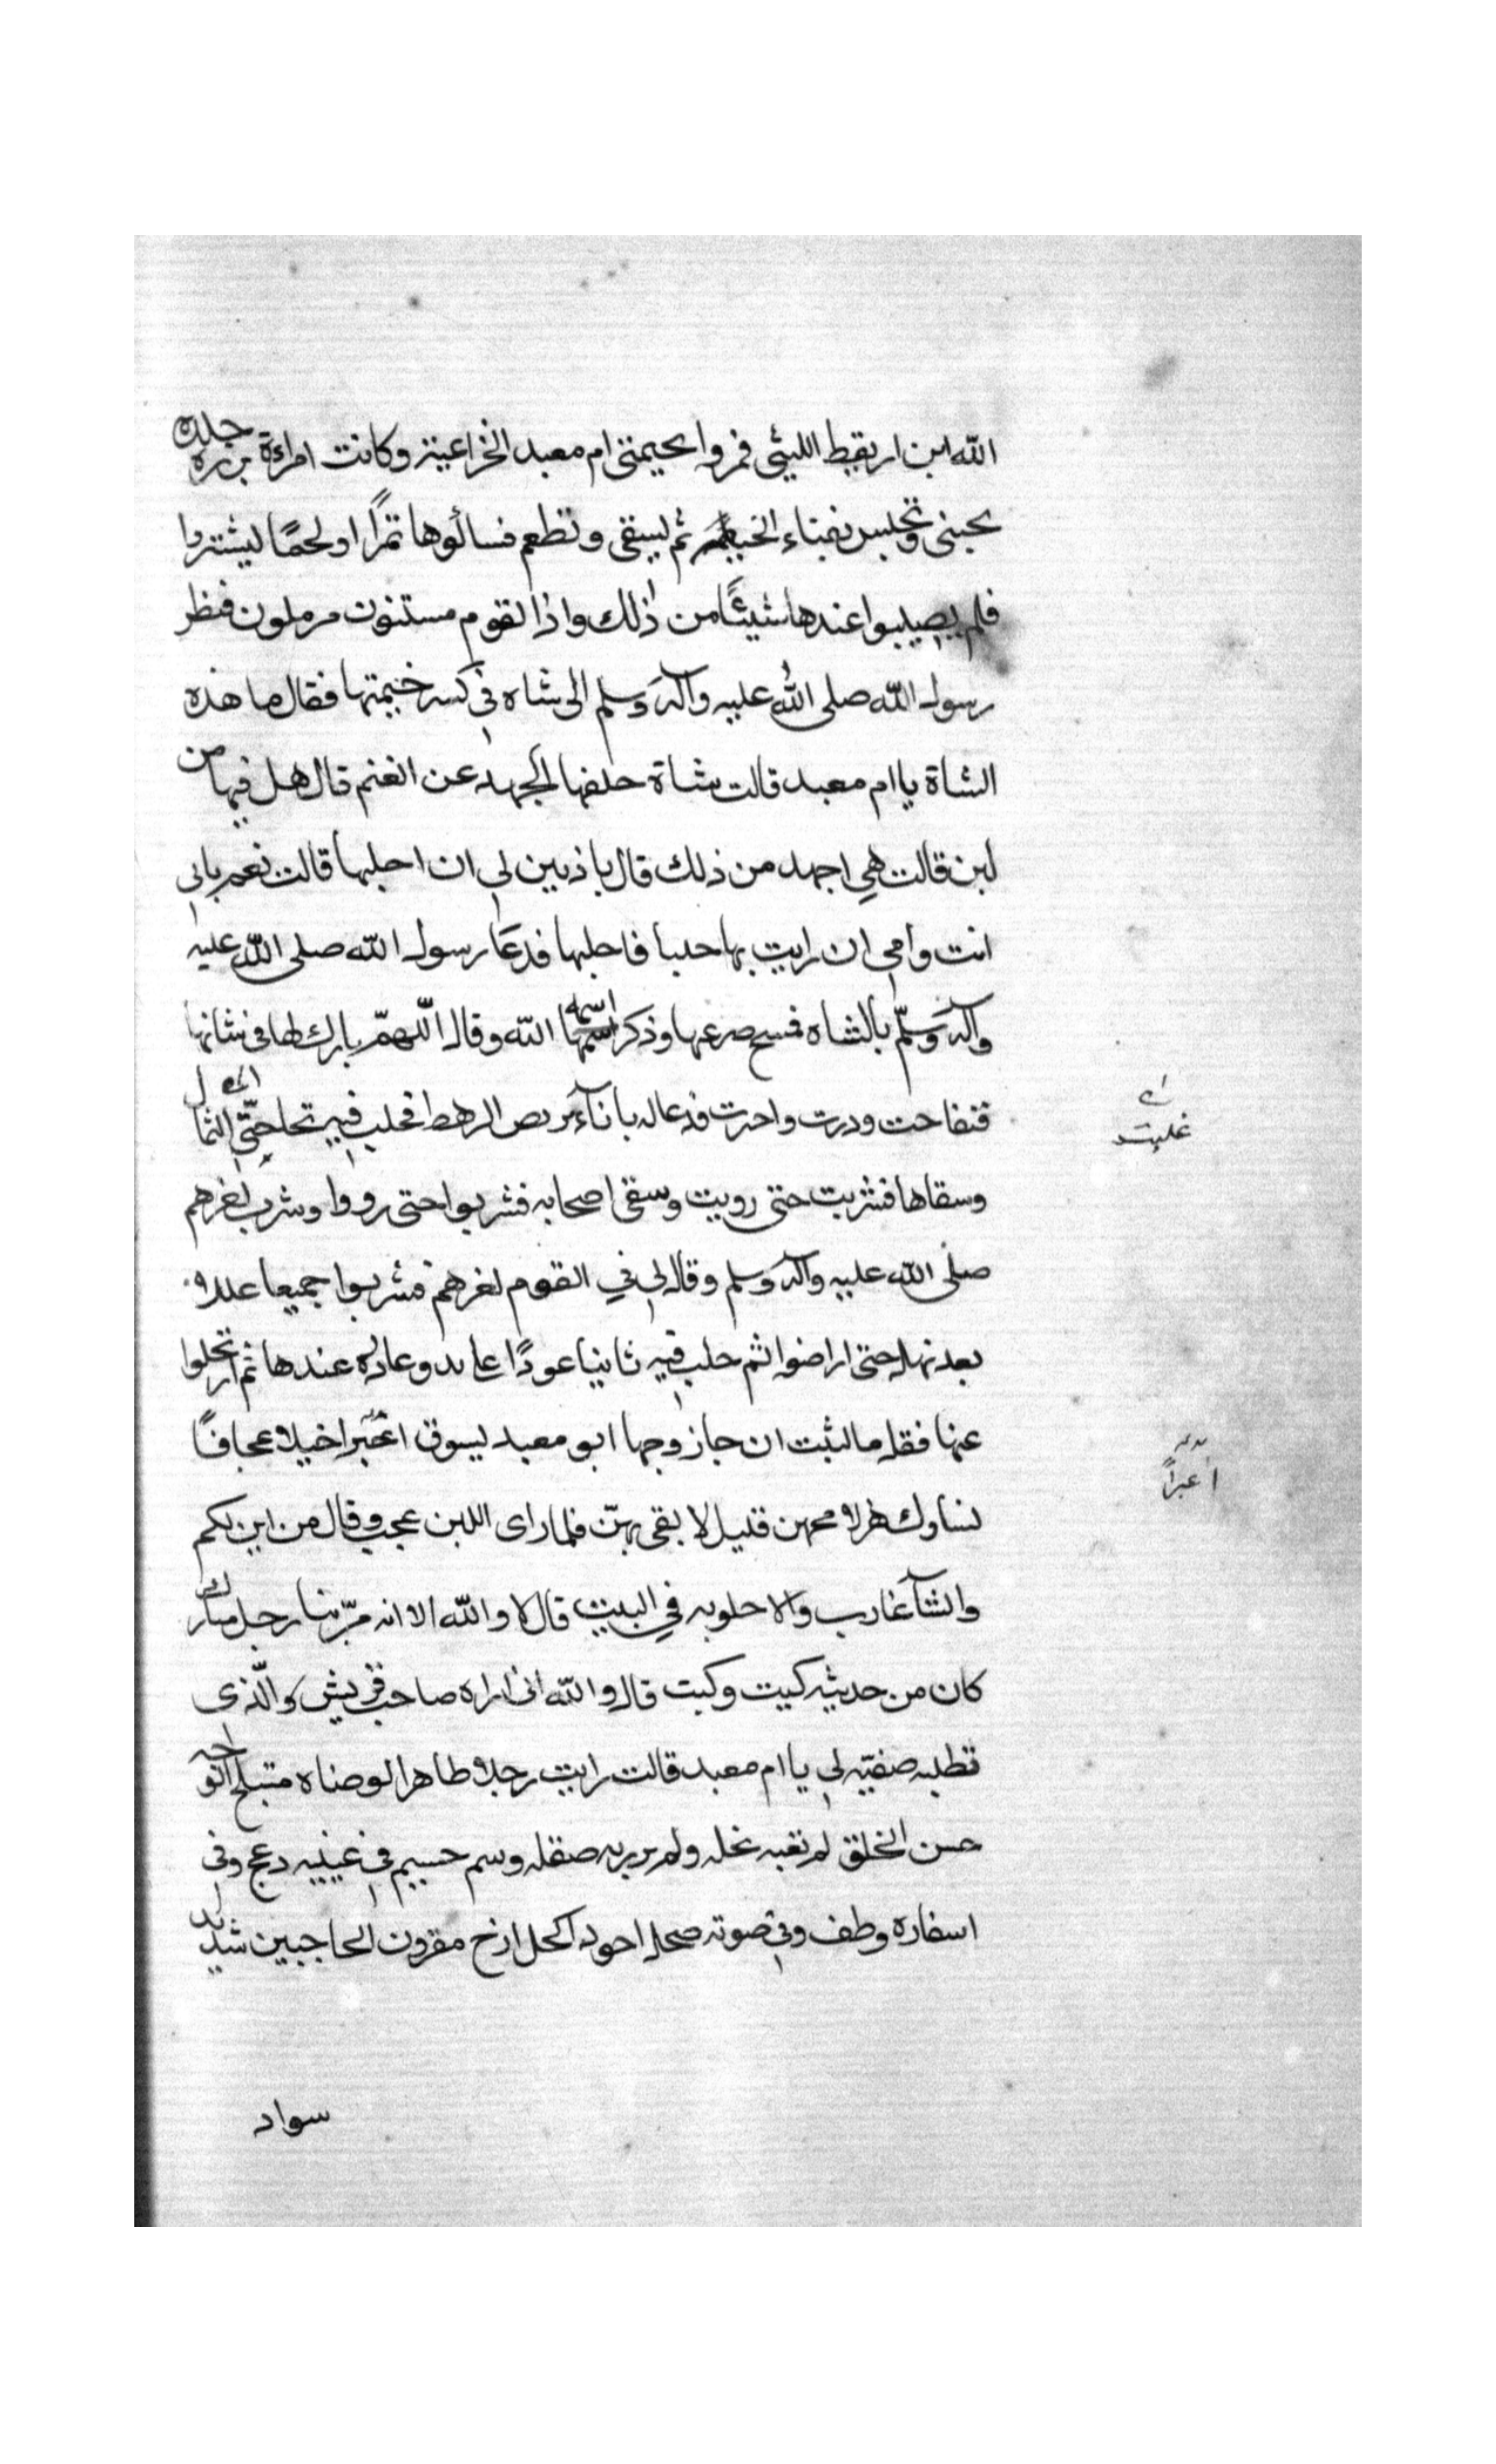 الله ابن اريقيط الليثى فمروا بخيمتى ام معبد الخزاعية وكانت امراءة برزه جلده
تحبنى وتجلس بفناء الخيمة ثم ليسقى وتطعم فسالوها تمرًا او لحمًا ليشتروا
فلم يصيبوا عندها شيئًا من ذلك واذا لقوم مستنون مرملون فنظر
رسول الله صلى الله عليه وآله وسلم الى شاه فى كسر خيمتها فقال ما هذه
الشاة يا ام معبد قالت شاة خلفها الجهد عن الغنم قال هل فيها من
لبن قالت هي اجهد من ذلك قال باذنين لى ان احلبها قالت نعم بابى
انت وامى ان رايت بها حلبا فاحلبها فدعا رسول الله صلى الله عليه
وآله وسلّم بالشاه فمسح ضرعها وذكر اسم الله وقال اللّهمّ بارك لها فى شاتها
فتفاجت ودرت واجترت فدعا له باناء يربص الرهط فحلب فيه ثجا حتّى الثمال
وسقاها فشربت حتى رويت وسقى اصحابه فشربوا حتى رووا وشرب اخرهم
صلى الله عليه وآله وسلم وقال فى القوم اخرهم فشربوا جميعا عللا
بعد نهل حتى اراضوا ثم حلب فيه ثانيا عودًا على بدو عادله عندها ثم ارتحلوا
عنها فقل ما لبثت ان جا زوجها ابو معبد ليسوق اعنزا خيلا عجافًا
تساوك هزلا مخهن قليل لا بقى بهنّ فلما راى اللبن عجب وقال من اين لكم
والشآ غارب ولا حلوبه في البيت قال لا والله الا انه مرّ بنا رجل مبارك
كان من حديثه كيت وكيت قال والله انى اراه صاحب قريش والّذى
تطلبه صفيّه لى يا ام معبد قالت رايت رجلا ظاهر الوضاه متبلج الوجه
حسن الخلق لم تعبه نحله ولم يزريه صقله وسم حسيم فى عينيه دعج وفى
اسفاره وطف وفى صوته صحل احول اكحل ازج مقرون الحاجبين شديد
سواد
اى
عليت
اعنزًا